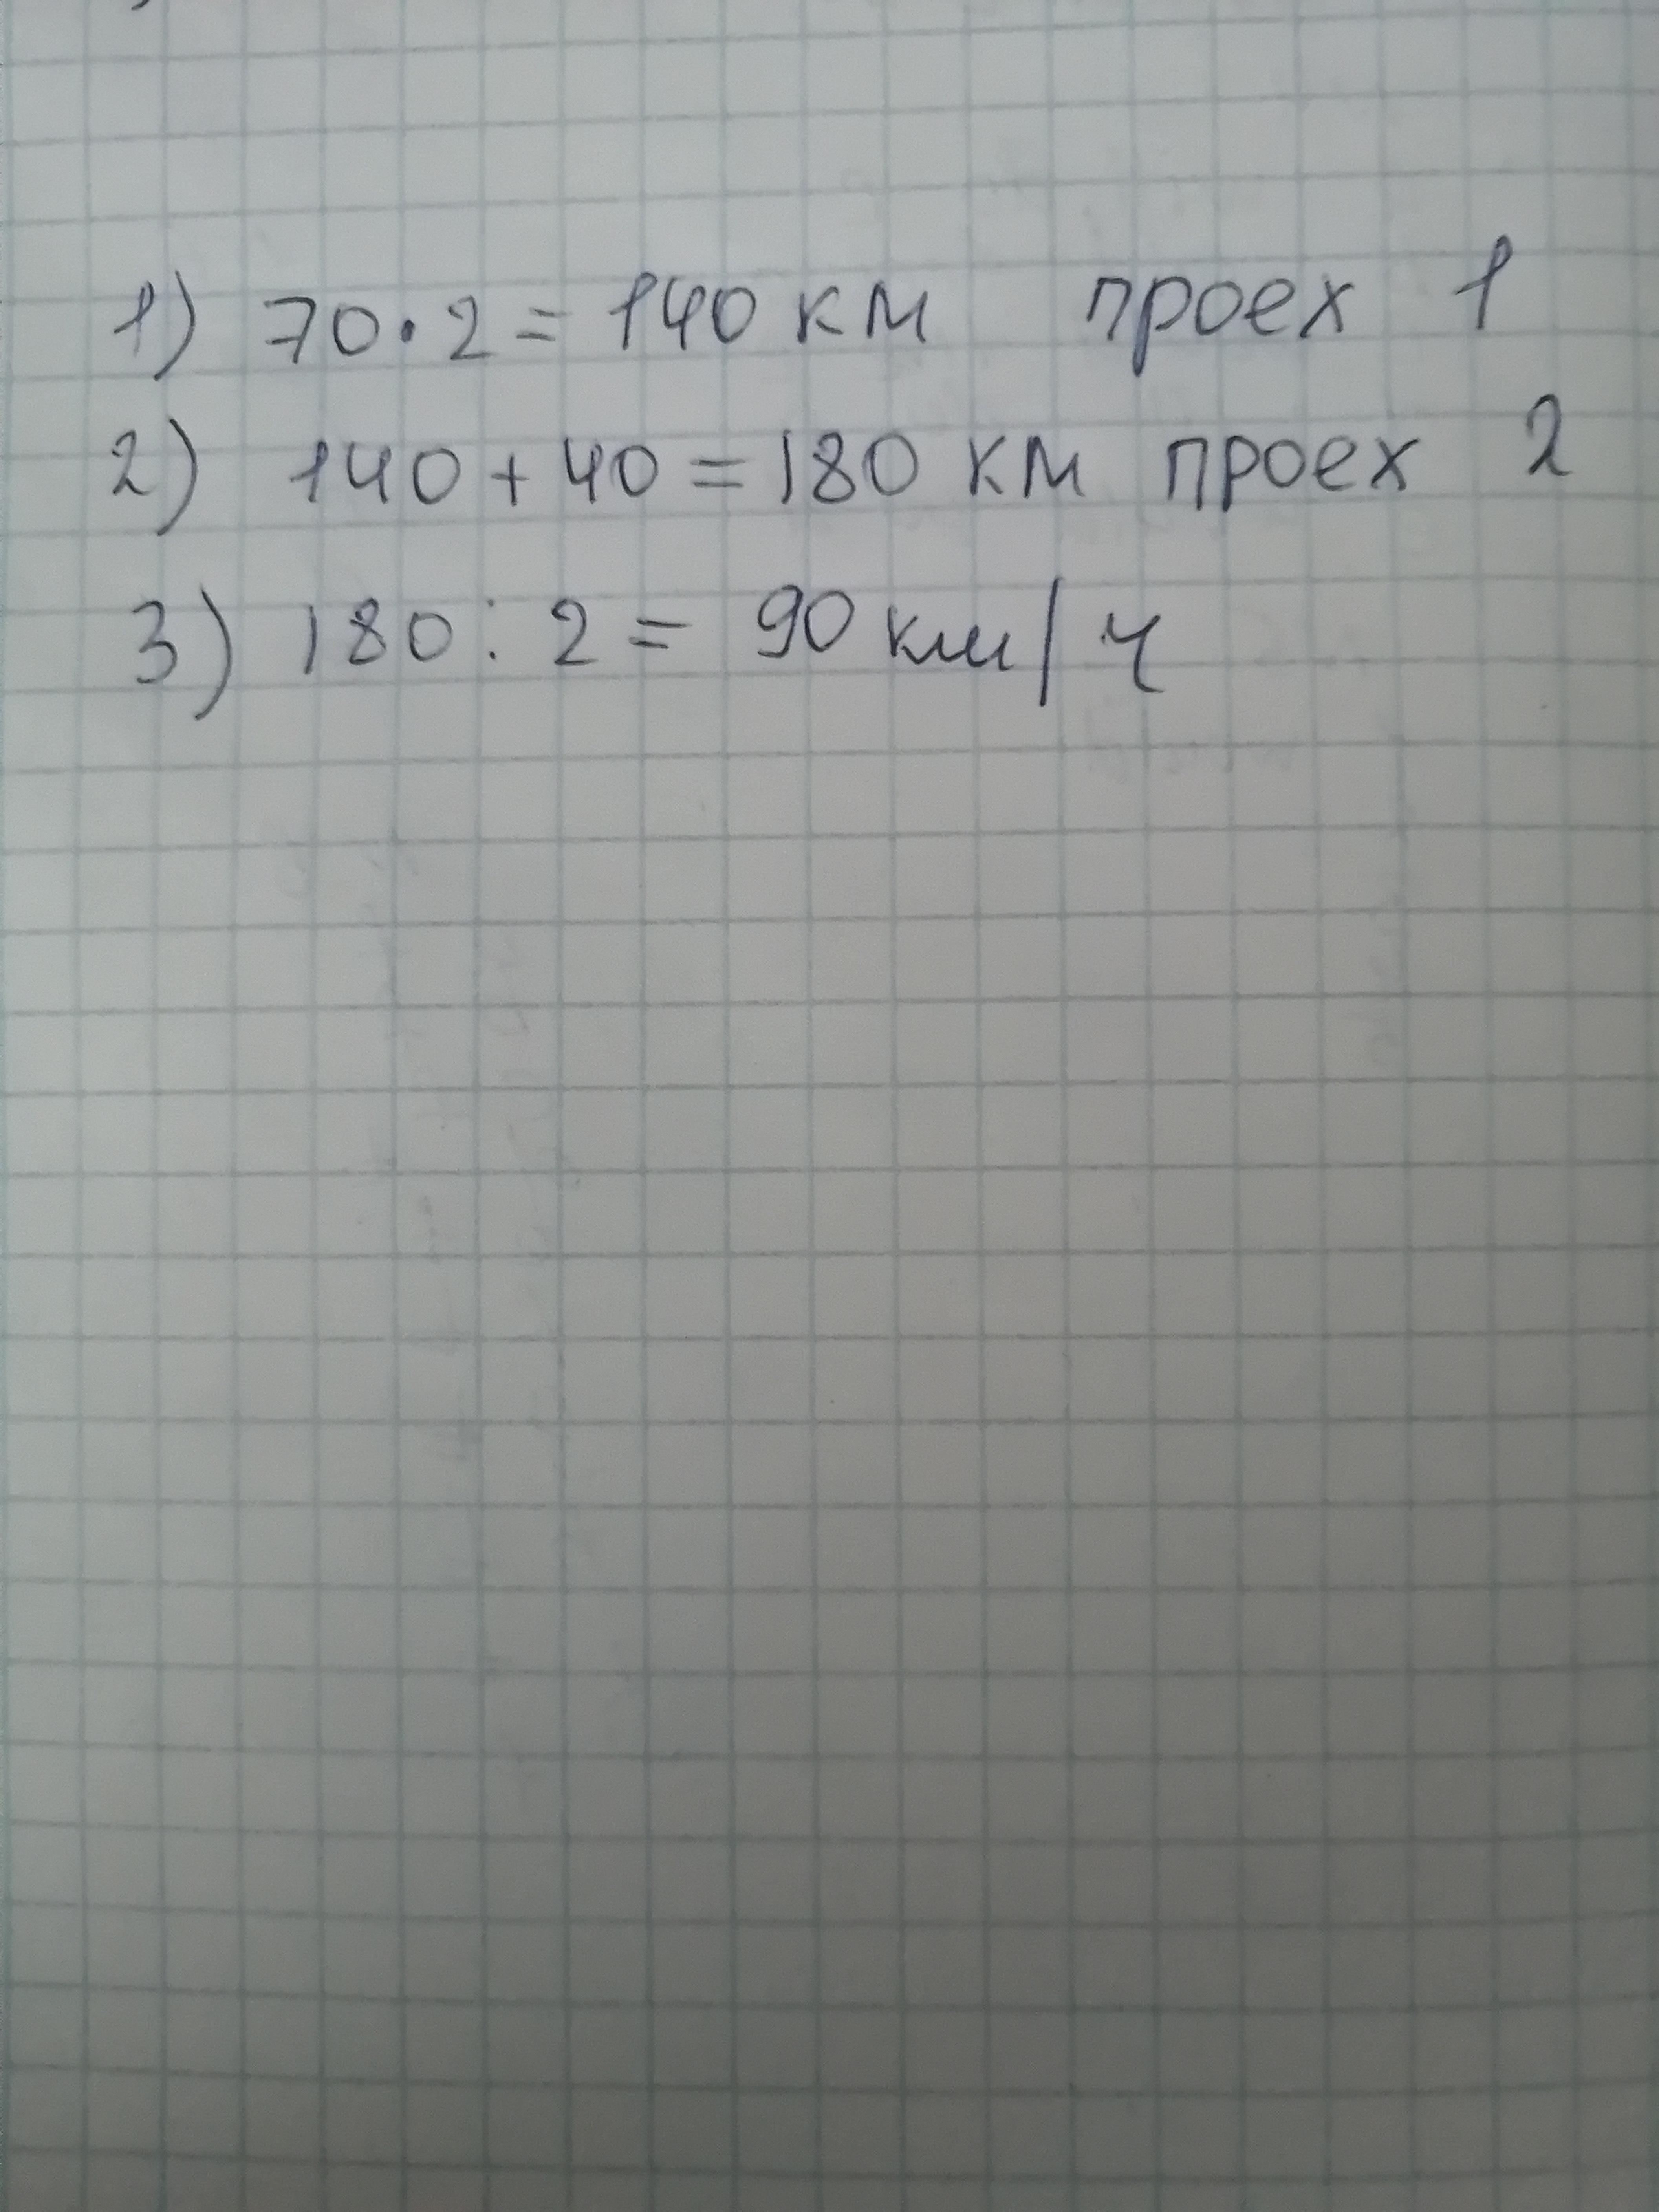 1) 70·2=140 км проех 1
2) 140+40=180 км проех 2
3) 180:2= 90 км/ч